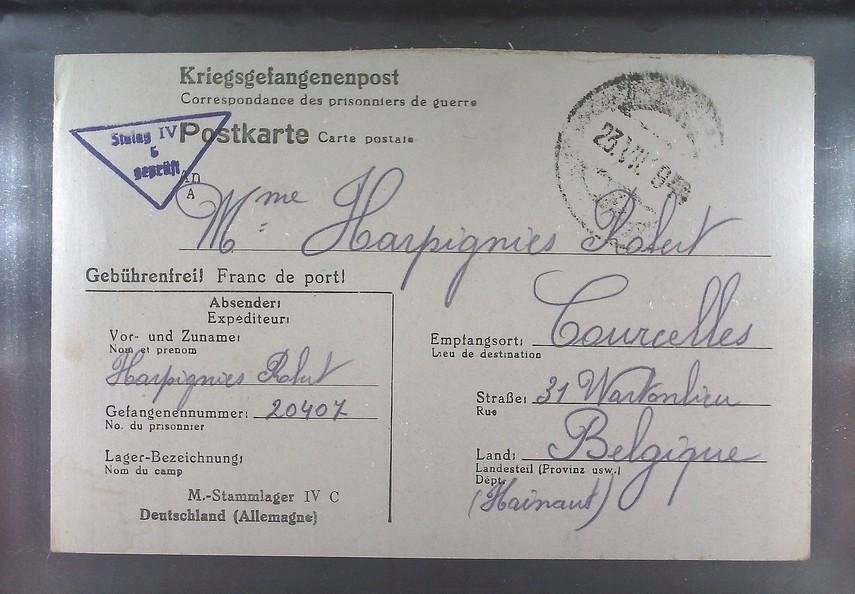 Kriegsgefangenenpost
Correspondance des prisonniers de guerre
Postkarte Carte postale
Stalag IV
6
geprüft
23.VII.
An
A
Mme Harpignies Robert
Gebührenfrei! Franc de port!
Absender:
Expéditeur:
Vor- und Zuname:
Nom et prenom
Harpignies Robert
Gefangenennummer: 20407
No. du prisonnier
Lager-Bezeichnung:
Nom du camp
M.-Stammlager IV C
Deutschland (Allemagne)
Empfangsort: Courcelles
Lieu de destination
Straße: 31 Wartonlieu
Rue
Land: Belgique
Landesteil (Provinz usw.)
Dépt.
(Hainaut)